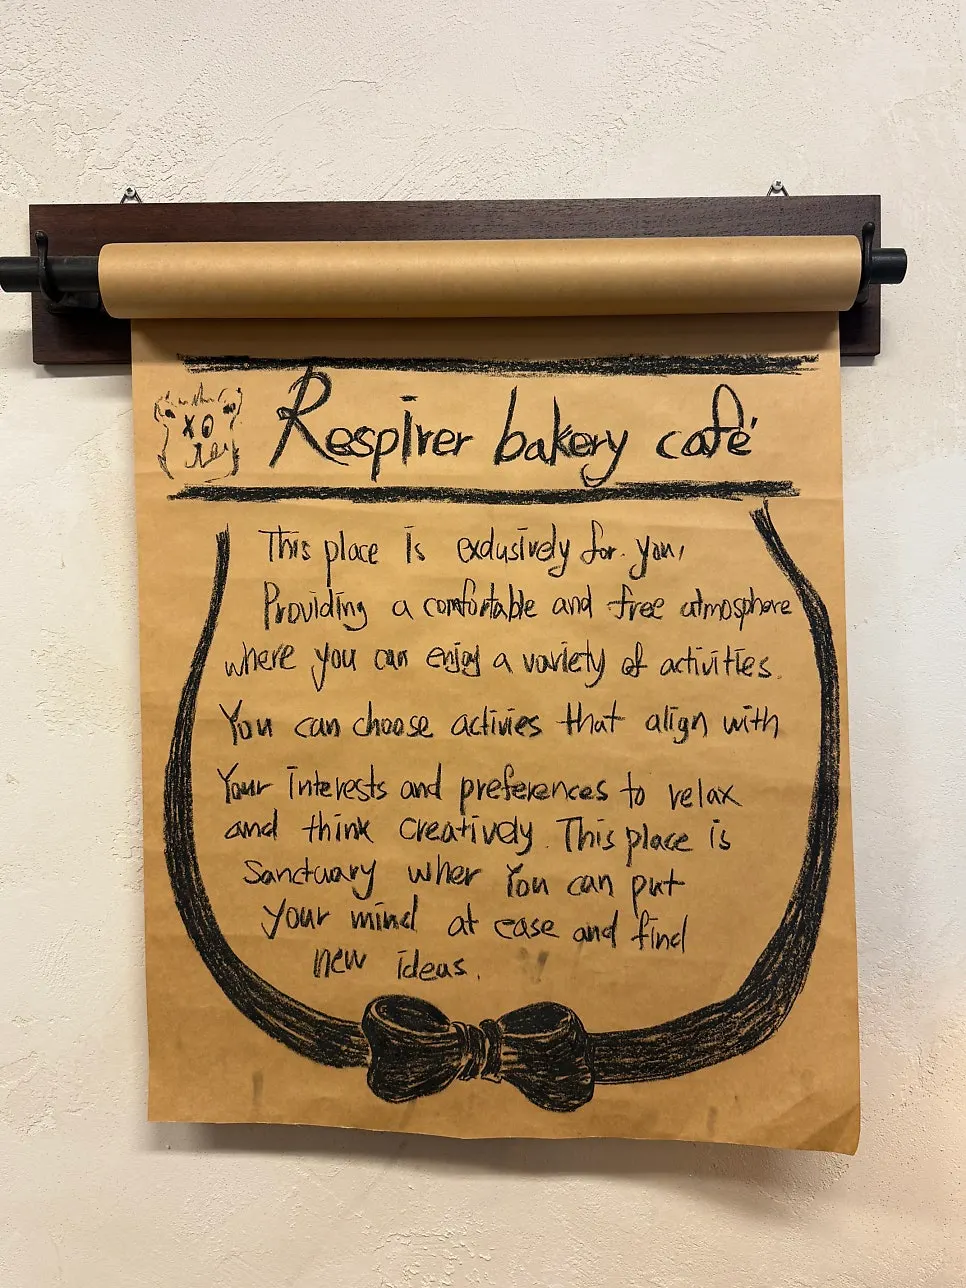 Respirer bakery café
This place is exclusively for you,
Providing a comfortable and free atmosphere
where you can enjoy a variety of activities.
You can choose activies that align with
Your interests and preferences to relax
and think creatively. This place is
Sanctuary wher You can put
your mind at ease and find
new ideas.